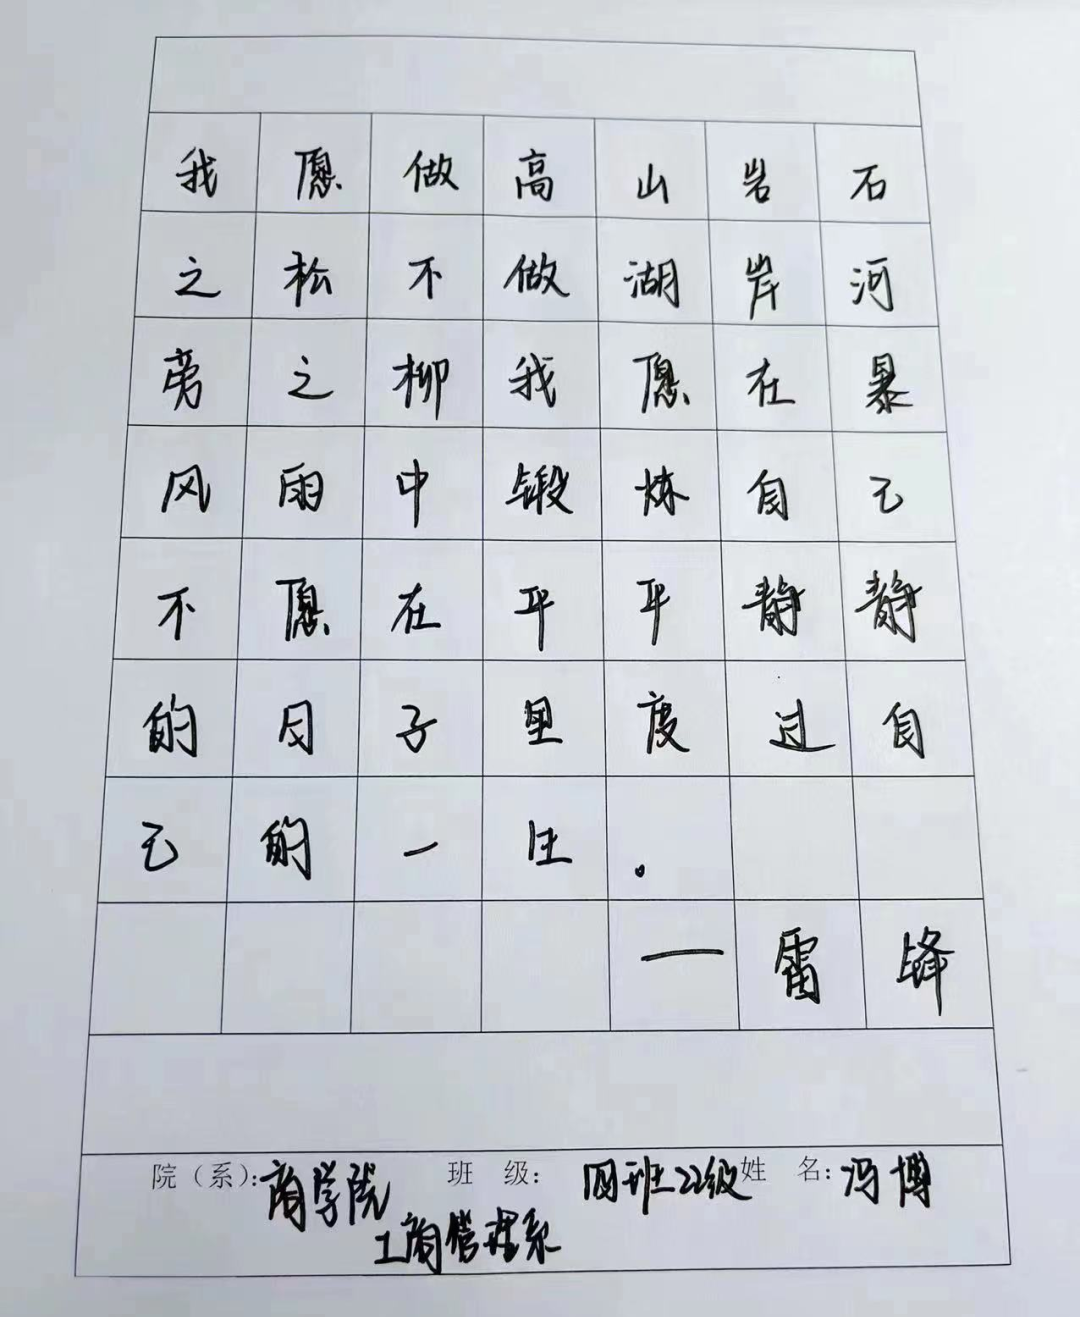 我愿做高山岩石
之松不做湖岸河
旁之柳我愿在暴
风雨中锻炼自己
不愿在平平静静
的日子里度过自
己的一生。
—雷锋
院（系）：商学院 班 级： 四班22级 姓 名：冯博
工商管理系